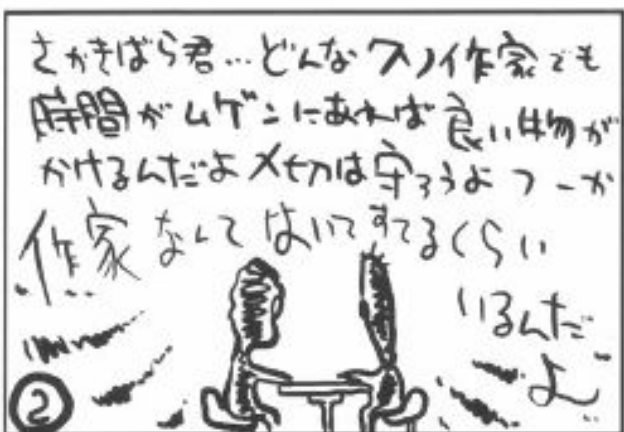 さかきばら君…どんなクソ作家でも
時間がムゲンにあれば良い物が
かけるんだよ〆切は守ろうよつーか
作家なんてはいてすてるくらい
いるんだ
よ
②